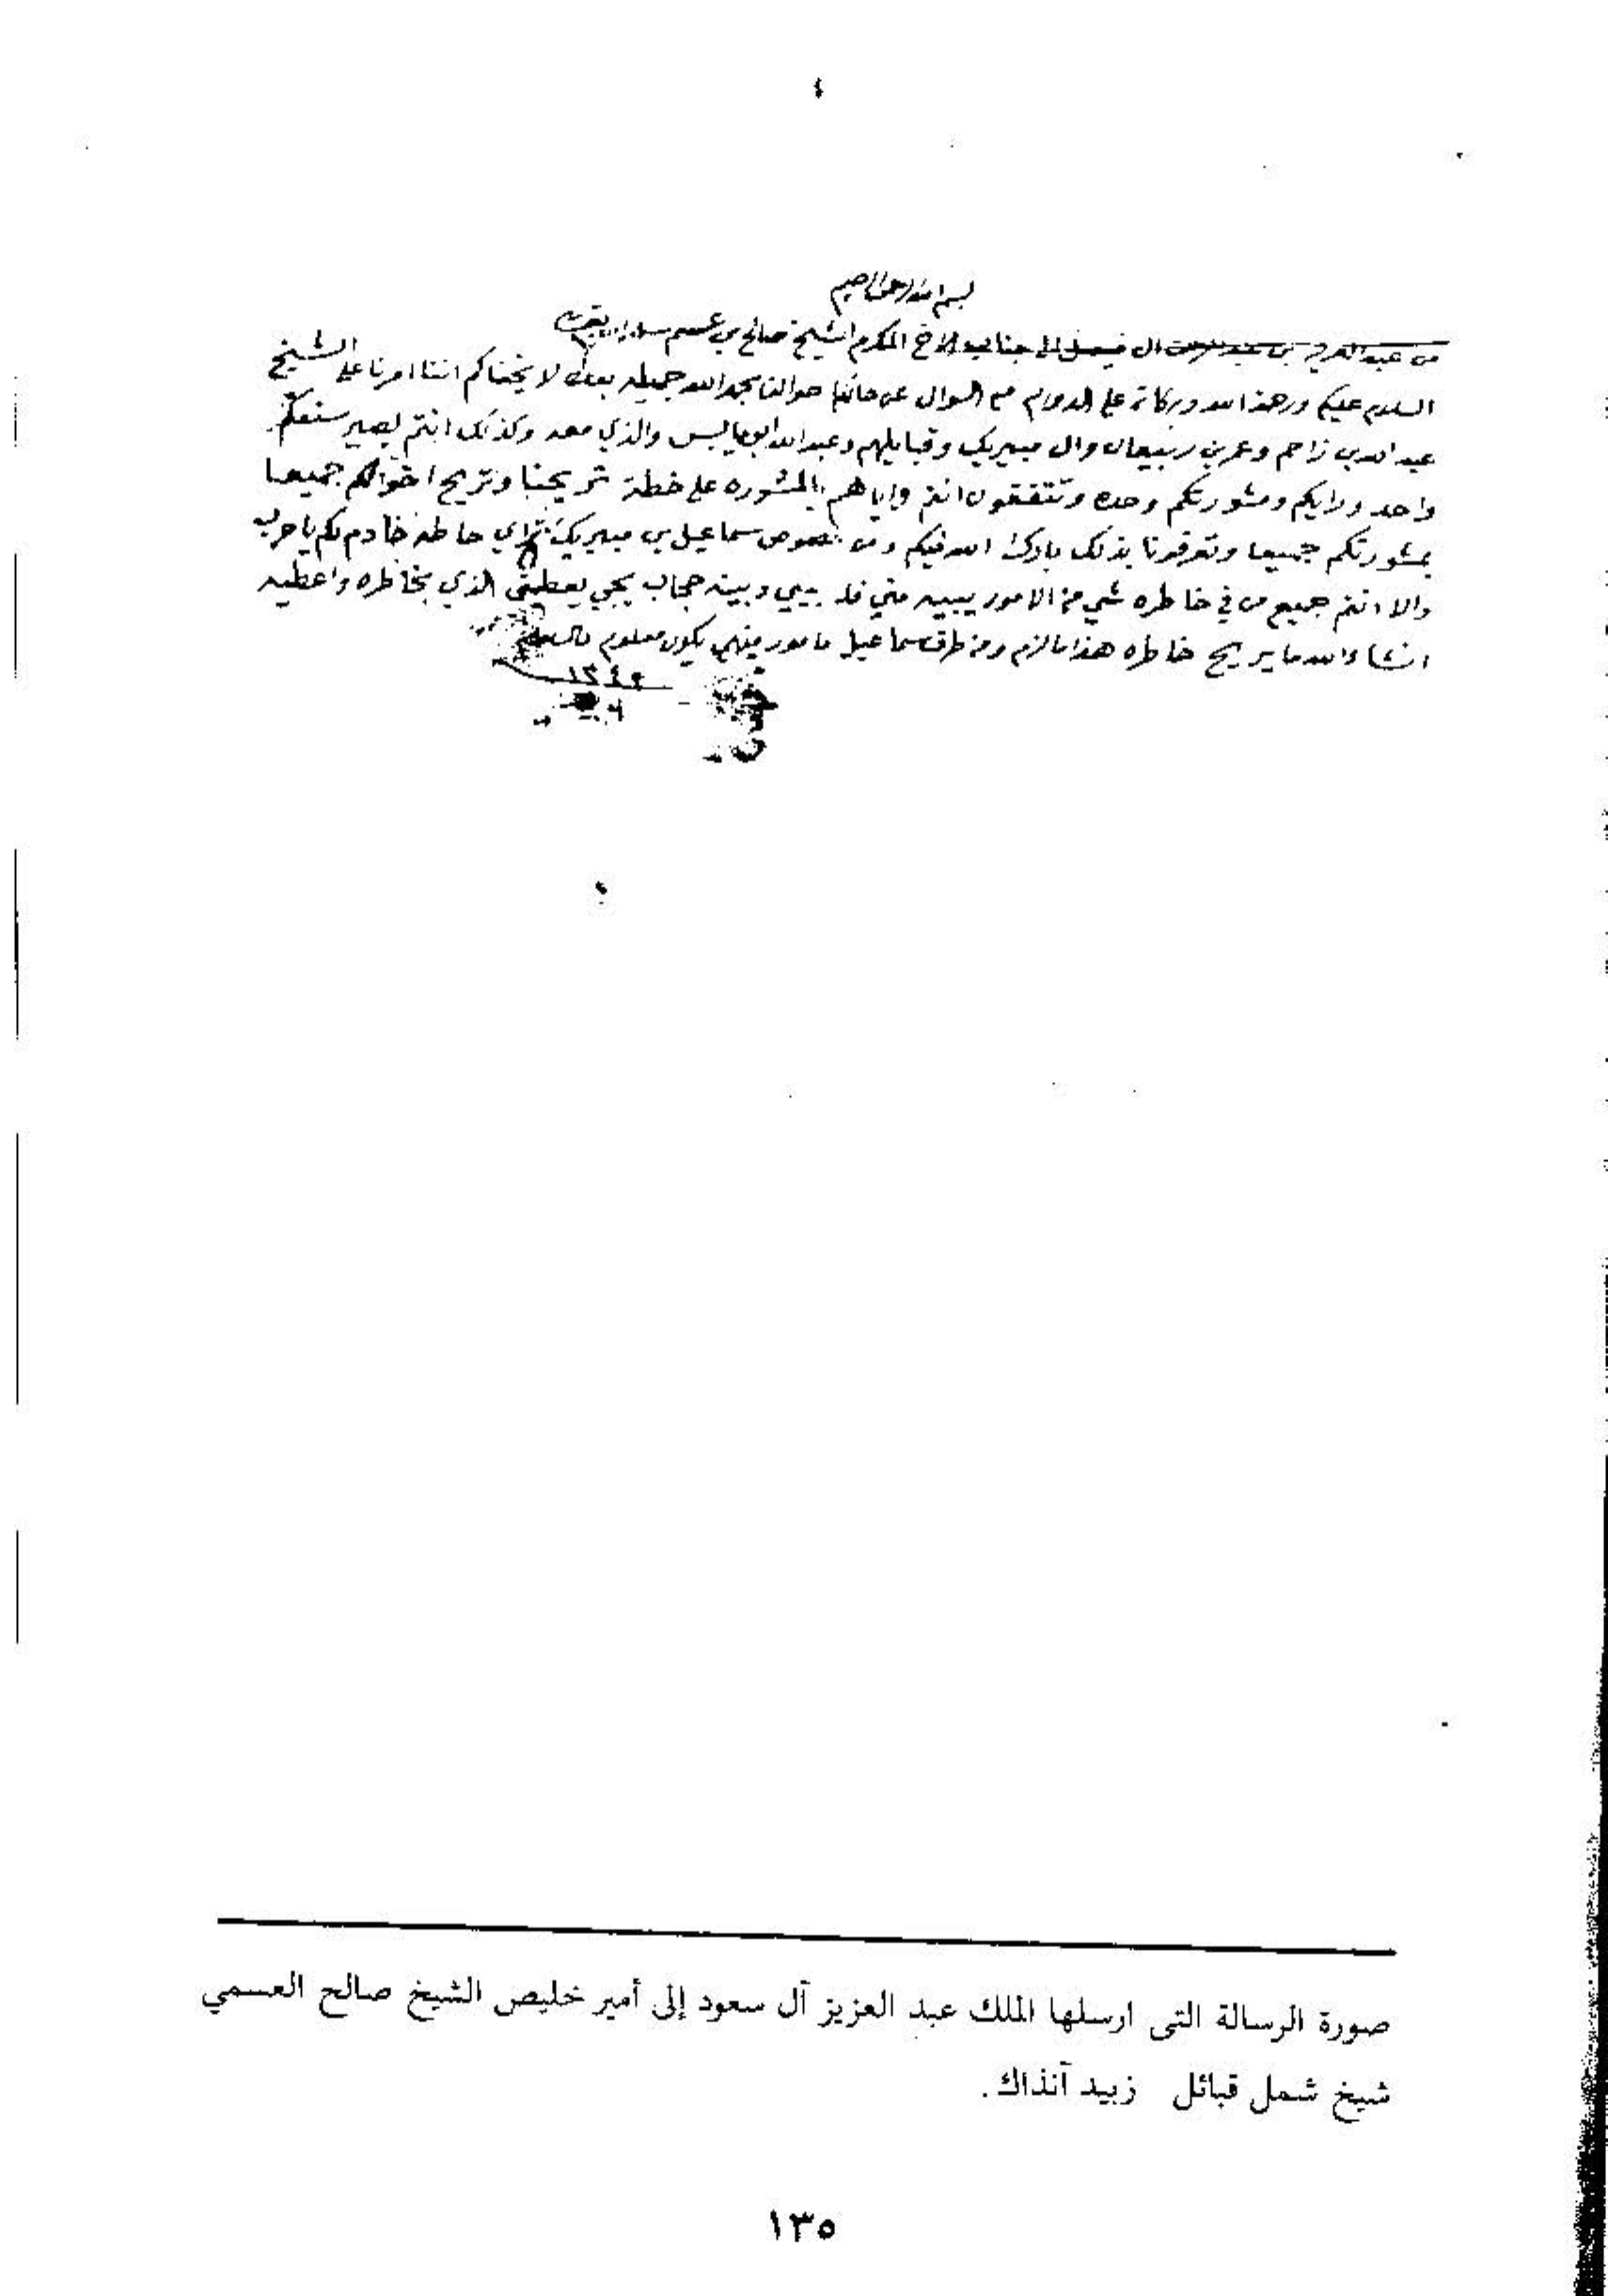 بسم الله الرحمن الرحيم
من عبد العزيز بن عبد الرحمن ال فيصل الى جناب الاخ المكرم الشيخ صالح بن عسم سلمه الله
السلام عليكم ورحمة الله وبركاته على الدوام مع السوال عن حالكم احوالنا بحمد الله جميله بعده لا يخفاكم اننا امرنا على الشيخ
عبد الله بن زاحم وعمر بن ربيعان وال مبيريك وقبايلهم وعبد الله والذي معه وكذلك انتم يصير
واحد ورايكم ومشورتكم وحده وتتفقون انتم واياهم بالمشوره على خطة تريحنا وتريح اخوانكم جميعا
بمشورتكم جميعا وتعرفونا بذلك بارك الله فيكم ومن خصوص سماعيل بن مبيريك خادم لكم يا حرب
والا انتم جميع من في خاطره شي من الامور يبيه مني فلا بيني وبينه حجاب يجي يعطيني الذي بخاطره واعطيه
انشاء الله ما يريح خاطره هذا ما لزم ومن طرف سماعيل مامور يكون معلوم والسلام
١٣٤٢
صورة الرسالة التى ارسلها الملك عبد العزيز آل سعود إلى أمير خليص الشيخ صالح العسمي
شيخ شمل قبائل زبيد آنذاك.
١٣٥